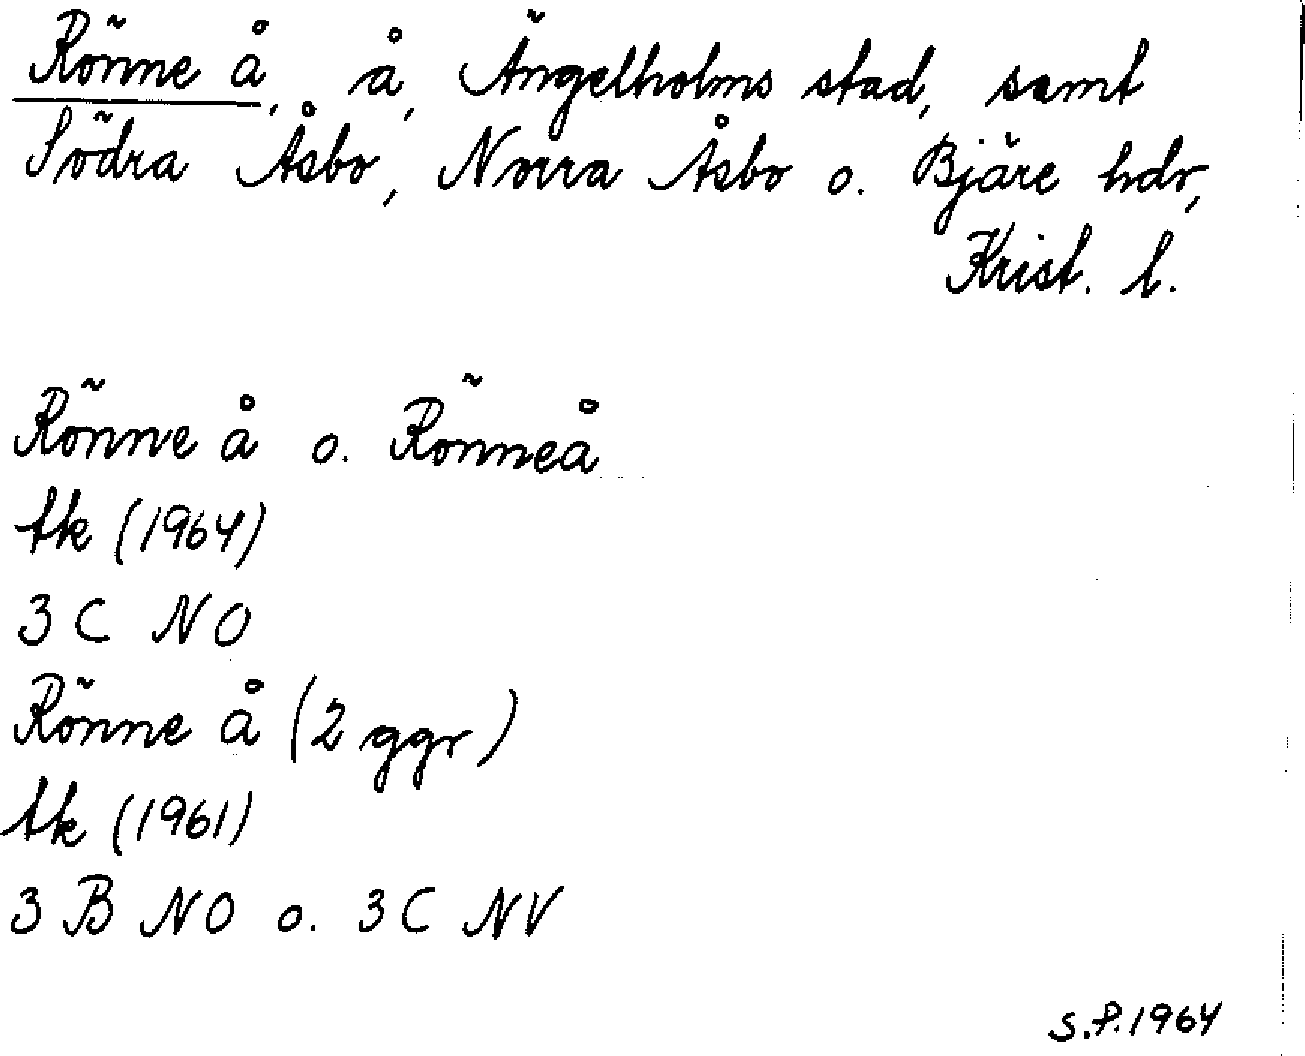 Rönne å, å, Ängelholms stad, samt
Södra Åsbo, Norra Åsbo o. Bjäre hdr,
Krist. l.
Rönne å o. Rönneå
tk (1964)
3 C NO
Rönne å (2 ggr)
tk (1961)
3 B NO o. 3 C NV
S.P. 1964